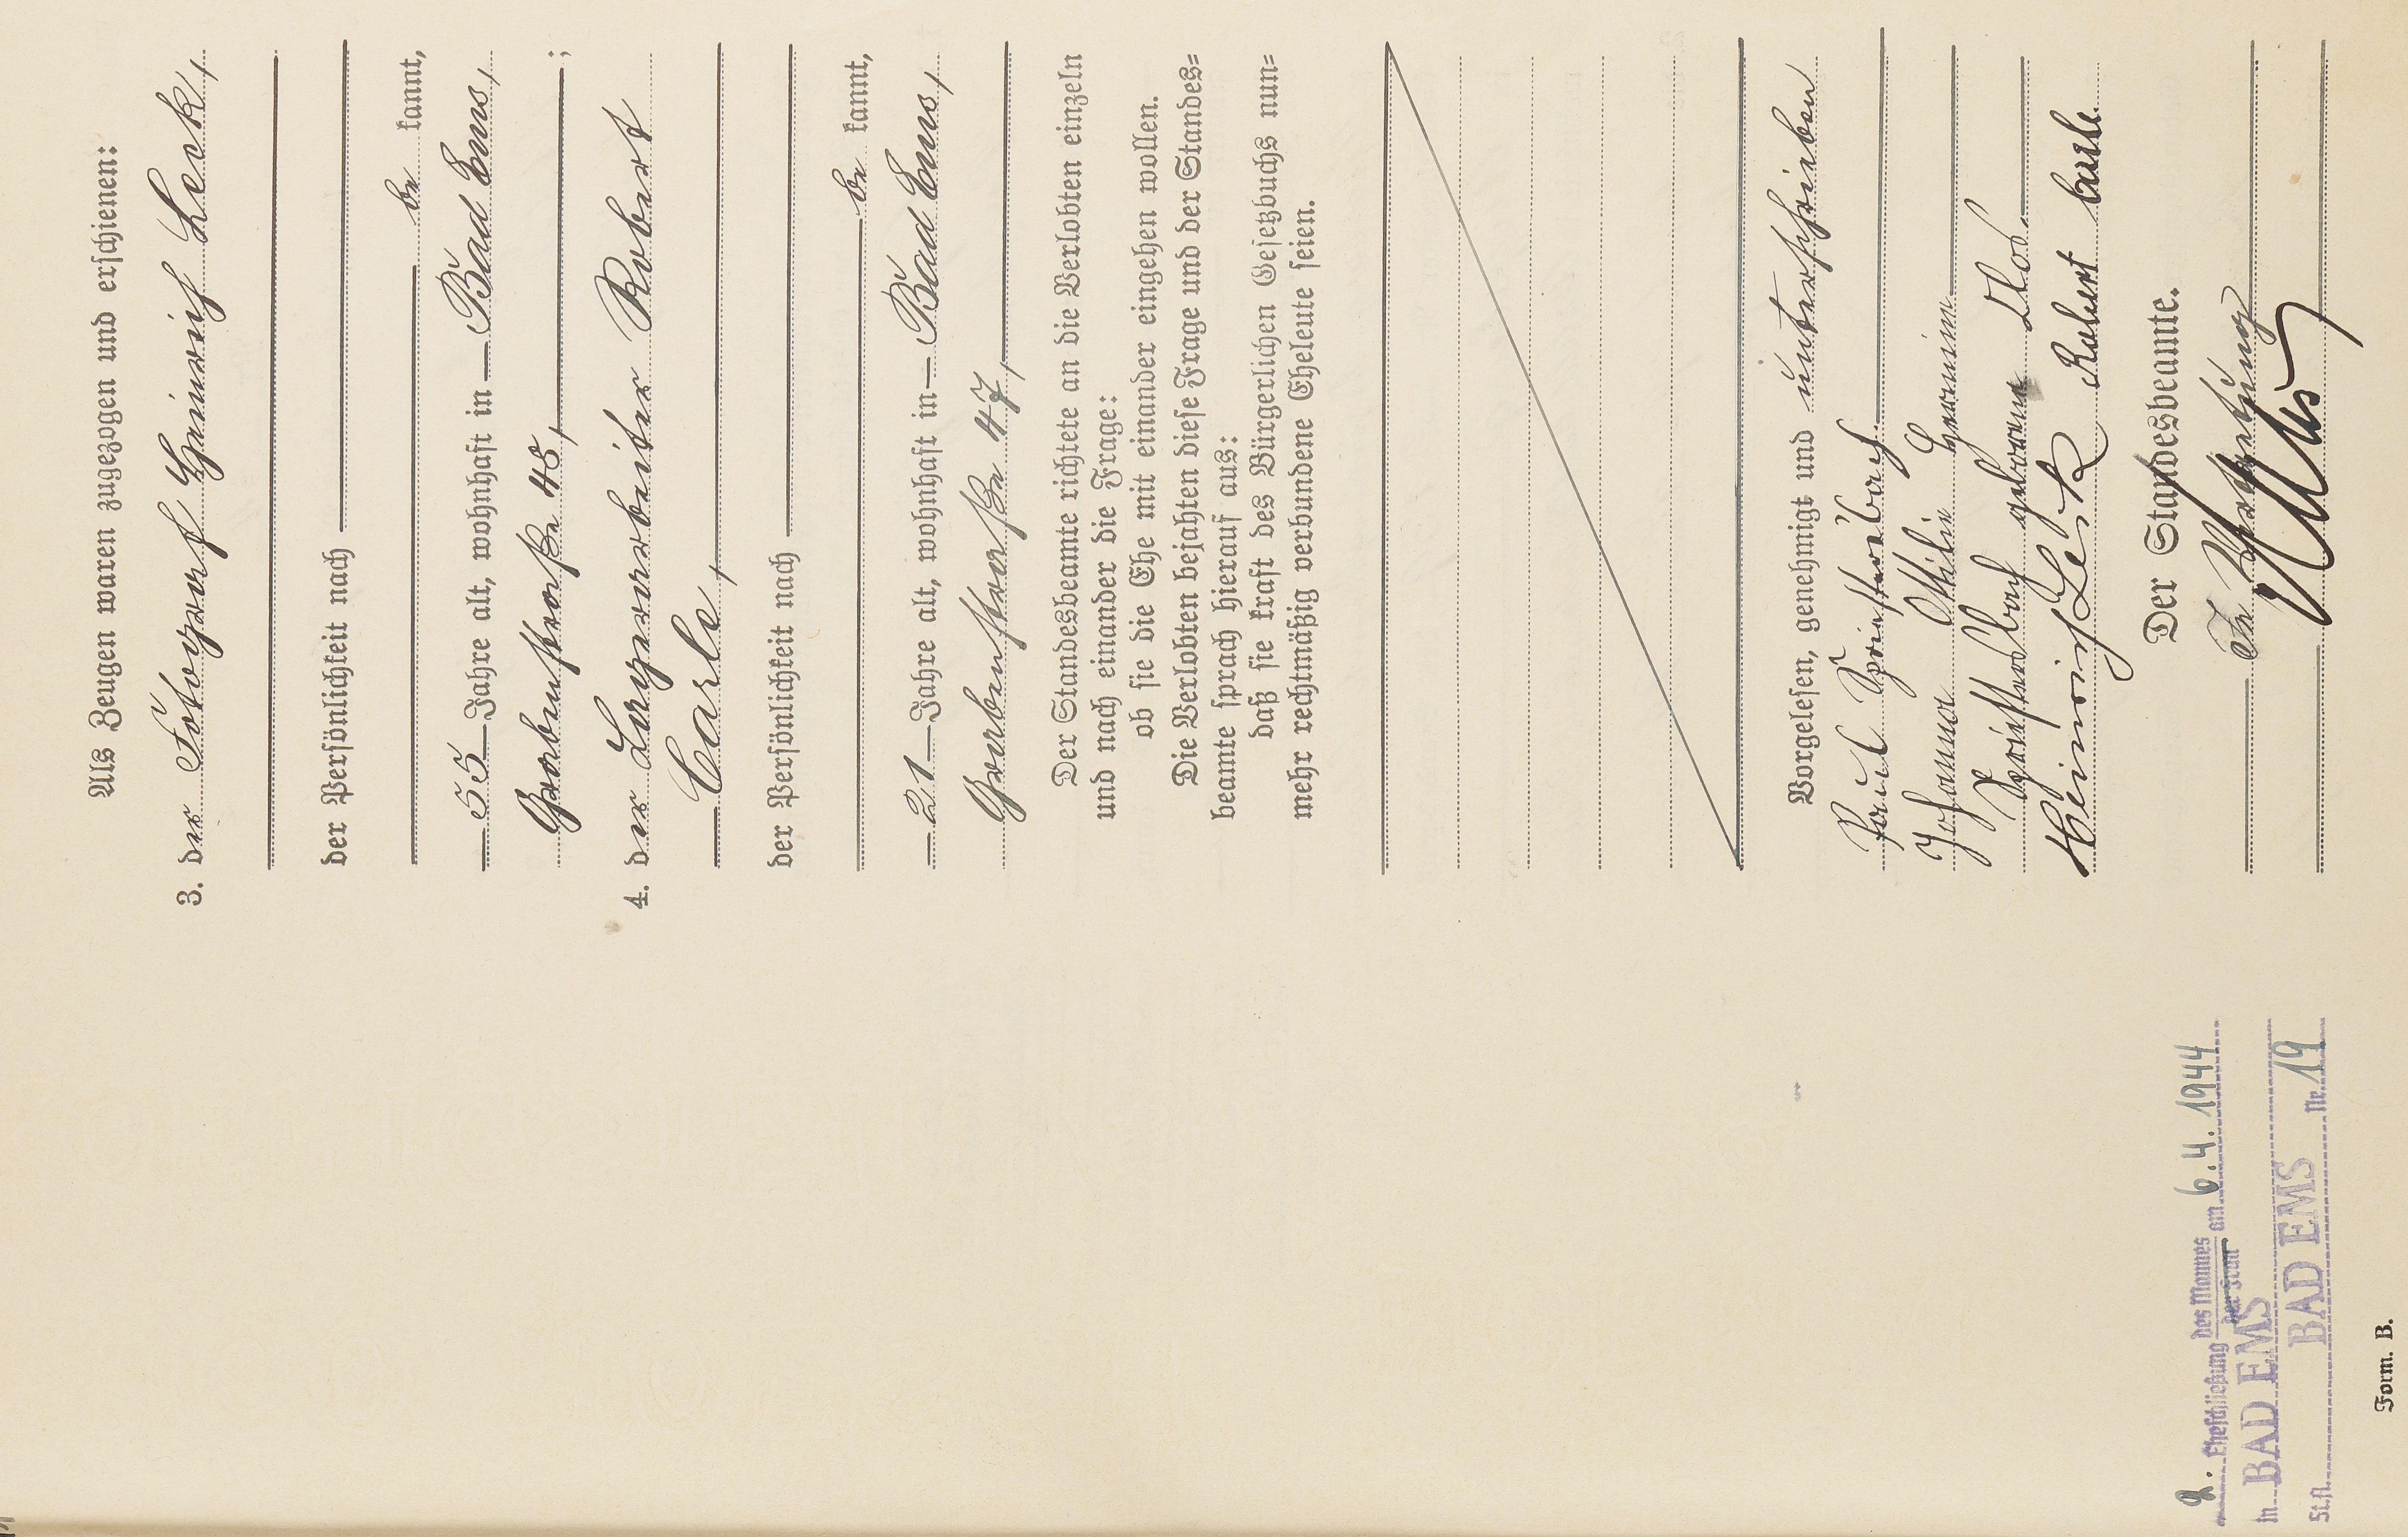 Als Zeugen waren zugezogen und erschienen:
3. der Fotograf Heinrich Leck,
der Persönlichkeit nach
be kannt,
55 Jahre alt, wohnhaft in Bad Ems,
Grabenstraße 48, ;
4. der Lagerarbeiter Robert
Carle,
der Persönlichkeit nach
be kannt,
21 Jahre alt, wohnhaft in Bad Ems,
Grabenstraße 47,
Der Standesbeamte richtete an die Verlobten einzeln
und nach einander die Frage:
ob sie die Ehe mit einander eingehen wollen.
Die Verlobten bejahten diese Frage und der Standes=
beamte sprach hierauf aus:
daß sie kraft des Bürgerlichen Gesetzbuchs nun=
mehr rechtmäßig verbundene Eheleute seien.
Vorgelesen, genehmigt und unterschrieben
Paul Spriestersbach.
Johanna Ottilie Hermine
Spriestersbach geborene Klos.
Heinrich Leck Robert Carle.
Der Standesbeamte.
In Vertretung
2. Eheschließung des Mannes am 6.4.1944
der Frau
in BAD EMS
St.A. BAD EMS Nr. 19
Form. B.